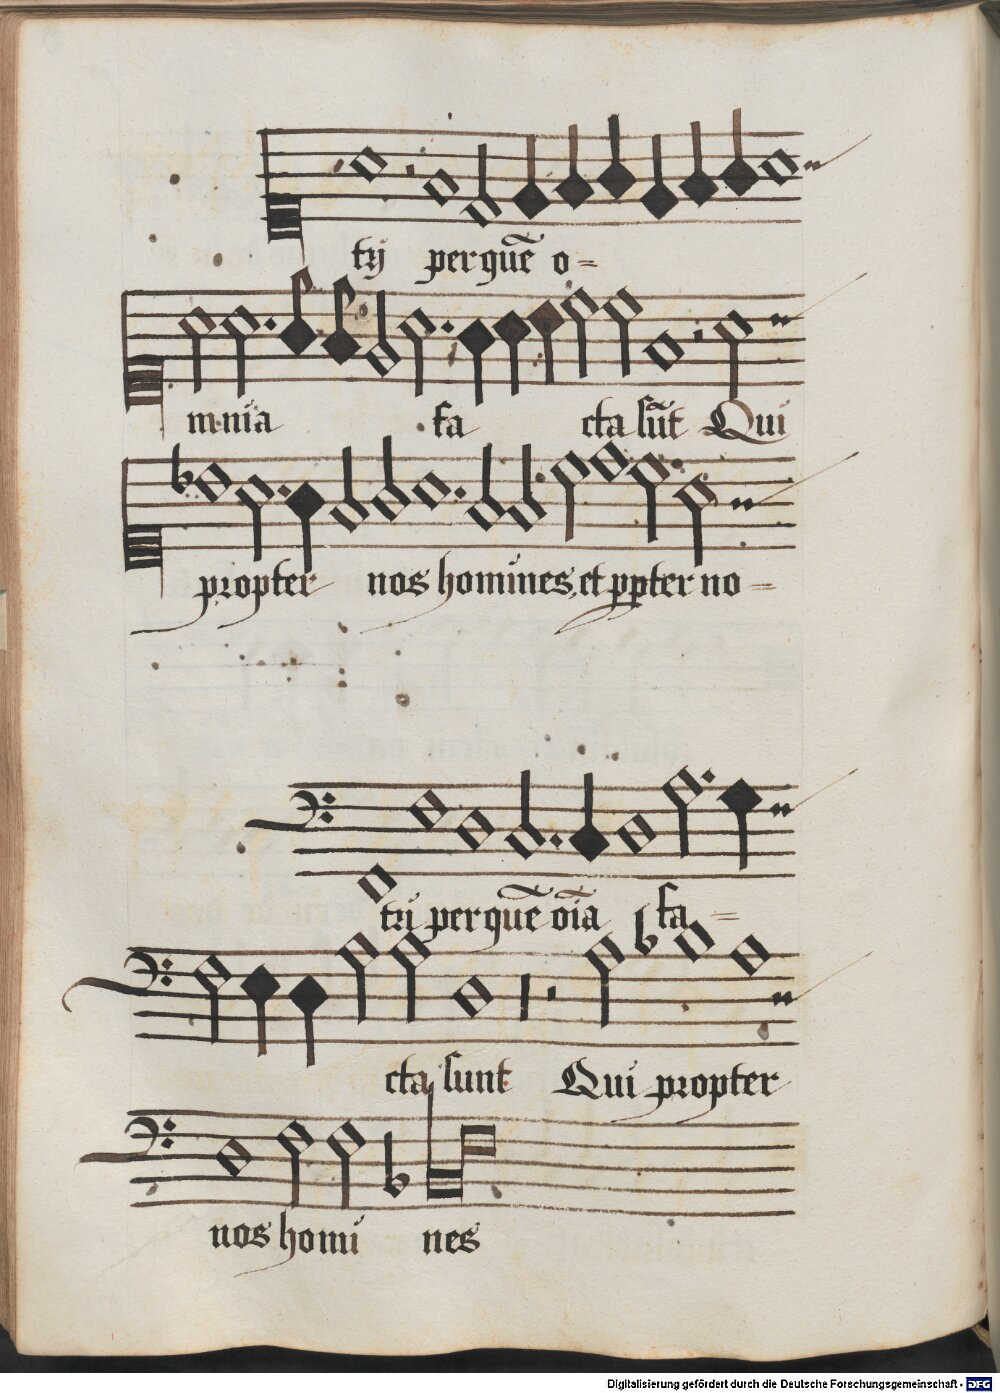 tꝫ perquē o=
mnia fa cta sūt Qui
propter nos homines, et ꝓpter no=
tri perquē oīa fa=
cta sunt Qui propter
nos homi nes
Digitalisierung gefördert durch die Deutsche Forschungsgemeinschaft - DFG